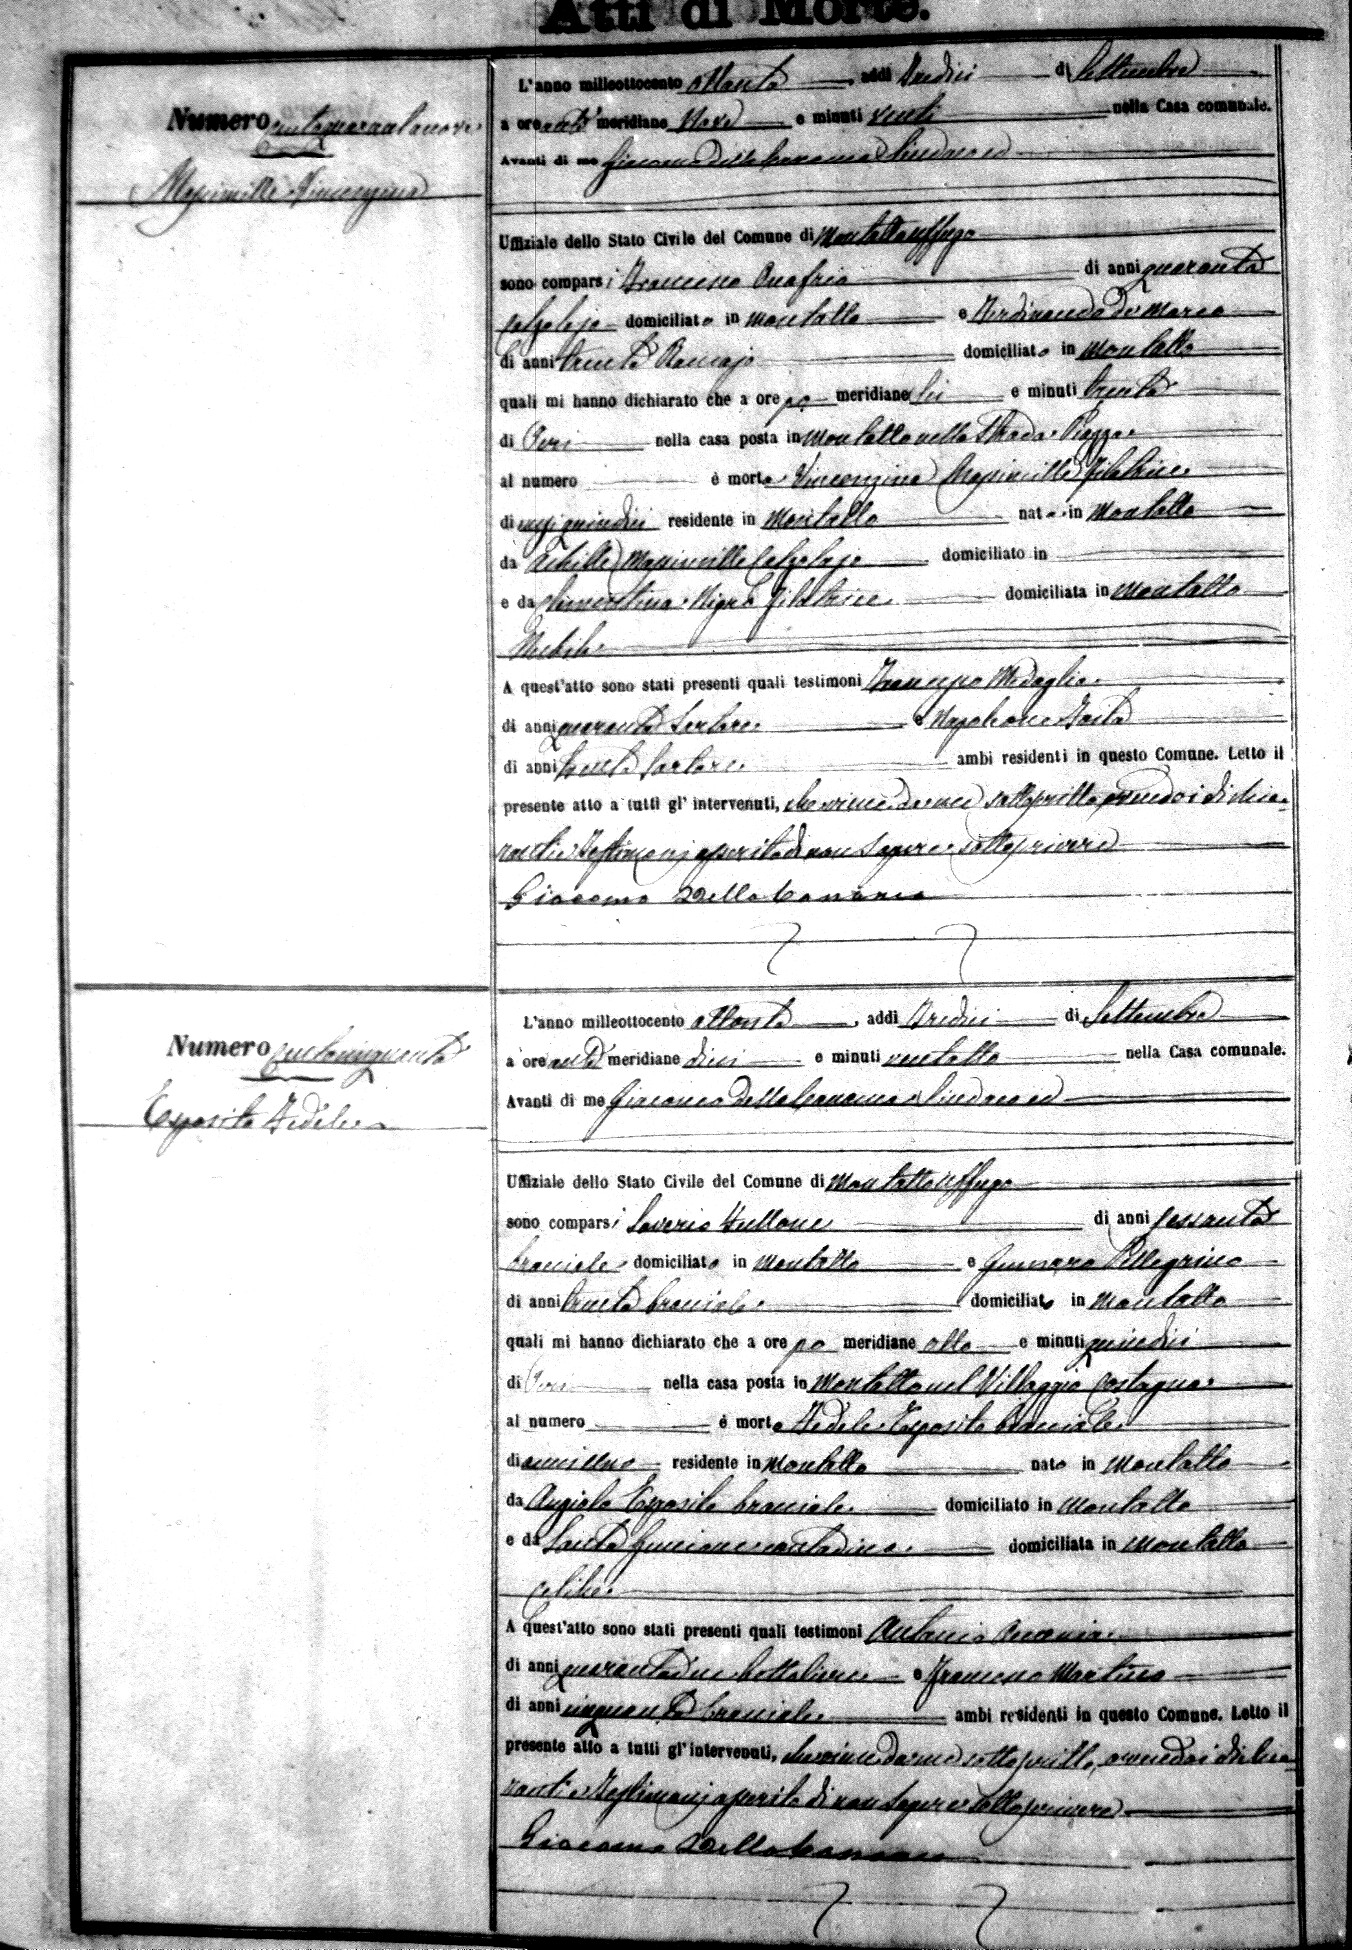 Atti di Morte.
Numero centoquarantanove
Massimilla Vincenzina
L'anno milleottocento ottanta, addì tredici di Settembre
a ore anti meridiane nove e minuti venti nella Casa comunale.
Avanti di me Giacomo Della Sindaco ed
Uffiziale dello Stato Civile del Comune di Montaltouffugo
sono comparsi Francesco Onofrio di anni quaranta
calzolajo domiciliato in Montalto e Ferdinando De Marco
di anni trenta domiciliato in Montalto
quali mi hanno dichiarato che a ore po meridiane sei e minuti trenta
di Jeri nella casa posta in Montalto nella Strada Piazza
al numero è morta Vincenzina Massimilla filatrice
di quindici residente in Montalto nata in Montalto
da Achille Massimilla Calzolajo domiciliato in
e da Clementina Nigro filatrice domiciliata in Montalto
Nubile
A quest'atto sono stati presenti quali testimoni Francesco Medaglia
di anni quaranta Sartore e Napoleone
di anni trenta Sartore ambi residenti in questo Comune. Letto il
presente atto a tutti gl'intervenuti, che viene da me sottoscritto, avendo i dichia-
ranti e Testimonj asserito di non sapere sottoscrivere
Giacomo Della
Numero centocinquanta
Esposito Fedele
L'anno milleottocento ottanta, addì tredici di Settembre
a ore anti meridiane dieci e minuti ventotto nella Casa comunale.
Avanti di me Giacomo Della Sindaco ed
Uffiziale dello Stato Civile del Comune di Montaltouffugo
sono comparsi Saverio Fullone di anni sessanta
bracciale domiciliato in Montalto e Gennaro Pellegrino
di anni trenta bracciale domiciliato in Montalto
quali mi hanno dichiarato che a ore po meridiane otto e minuti quindici
di Jeri nella casa posta in Montalto nel Villaggio Costagna
al numero è morto Fedele Esposito bracciale
di residente in Montalto nato in Montalto
da Angiolo Esposito bracciale domiciliato in Montalto
e da Santa contadina domiciliata in Montalto
celibe
A quest'atto sono stati presenti quali testimoni Antonio
di anni e Francesco Martino
di anni cinquanta bracciale ambi residenti in questo Comune. Letto il
presente atto a tutti gl'intervenuti, che viene da me sottoscritto, avendo i dichia-
ranti e Testimonj asserito di non sapere sottoscrivere
Giacomo Della